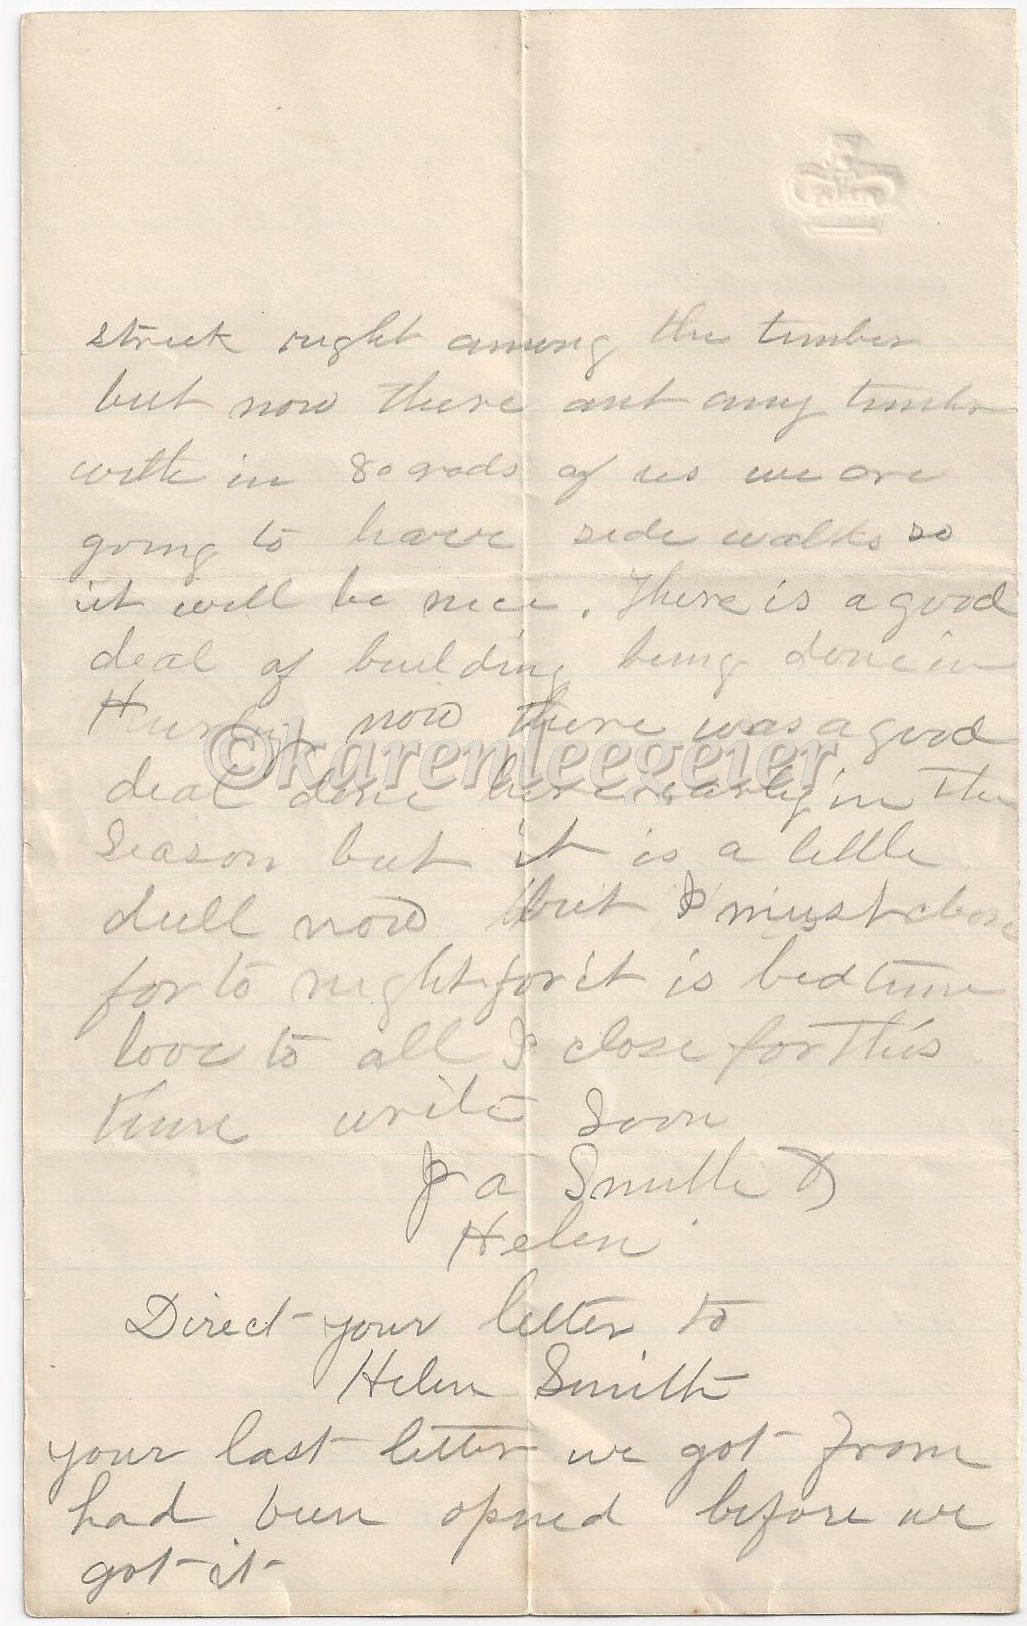 street right among the timber
but now there ant any timber
with in 80 rods of us we are
going to have side walks so
it will be nice. There is a good
deal of building being done in
Hurley now there was a good
deal done here early in the
Season but it is a little
dull now but I must close
for to night for it is bed time
love to all I close for this
time write Soon
J a Smith &
Helen
Direct your letter to
Helen Smith
your last letter we got from
had been opned before we
got it
©karenleegeier